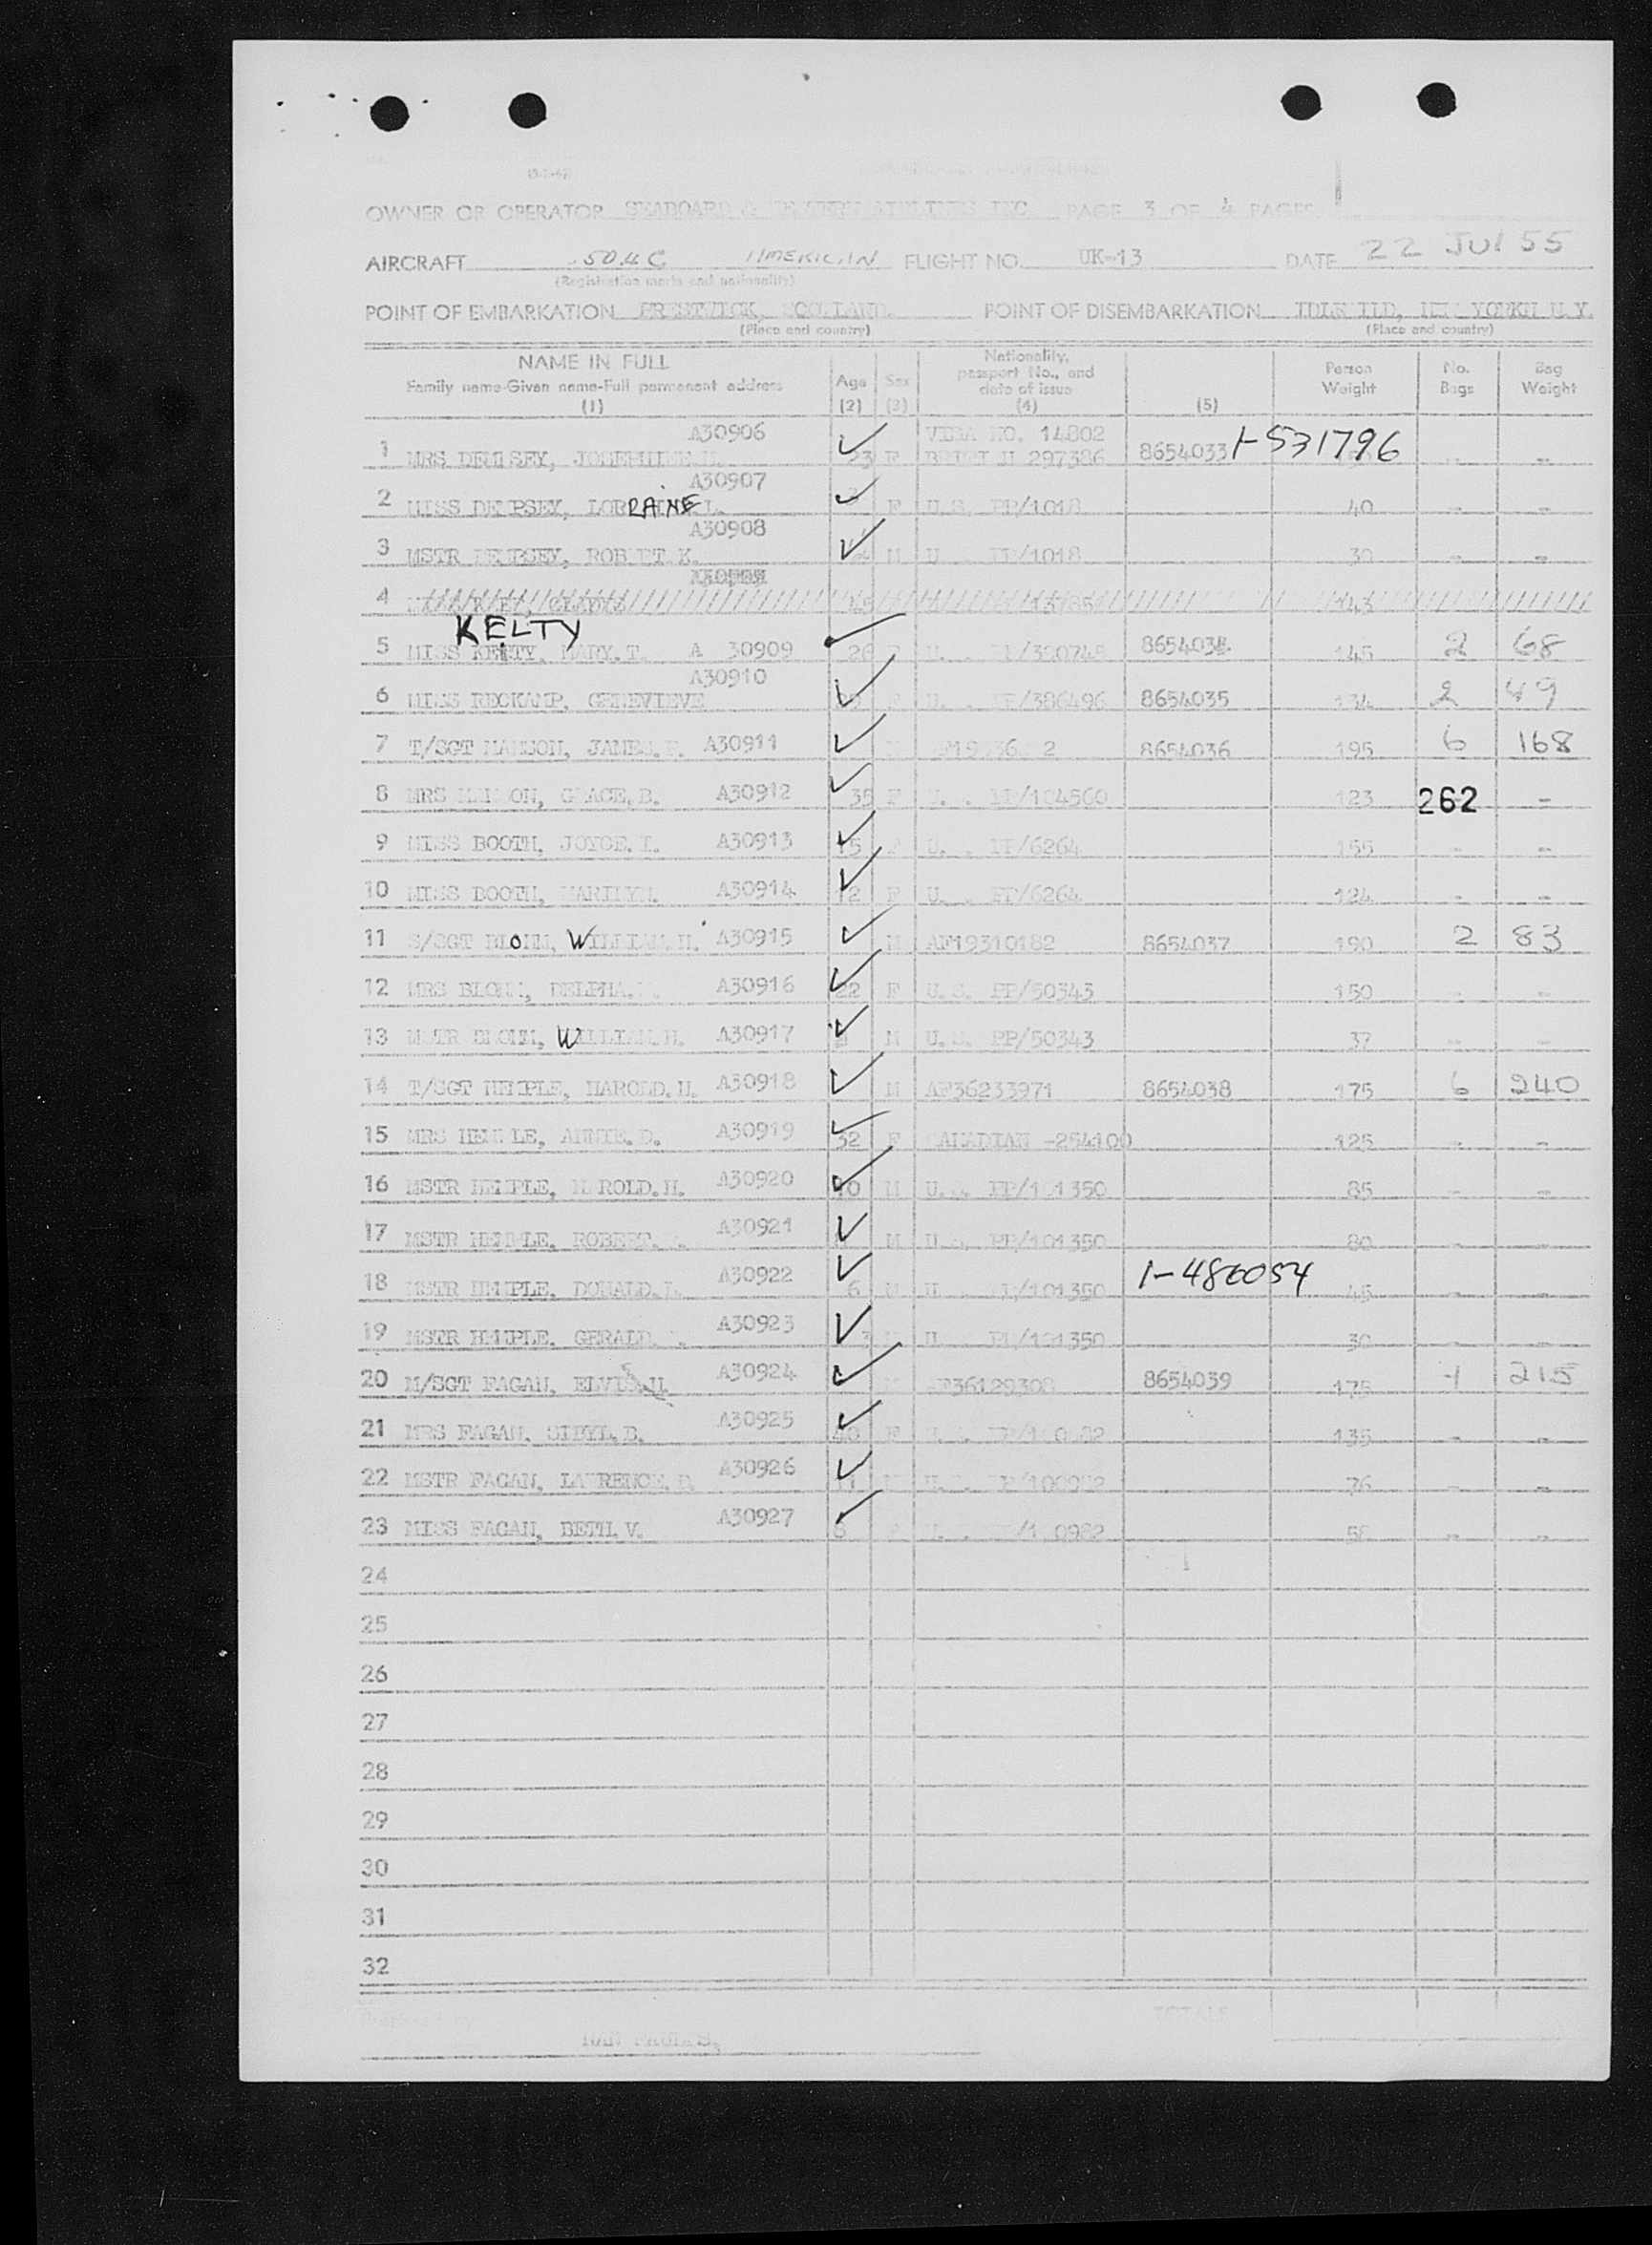 OWNER OR OPERATOR SEABOARD & WESTERN AIRLINES INC PAGE 3 OF 4 PAGES
AIRCRAFT 504C AMERICAN FLIGHT NO. UK-13 DATE 22 JUL 55
(Registration marks and nationality)
POINT OF EMBARKATION PRESTWICK, SCOTLAND. POINT OF DISEMBARKATION IDLEWILD, NEW YORK N.Y.
(Place and country) (Place and country)
NAME IN FULL Nationality, passport No., and date of issue Person Weight No. Bags Bag Weight
Family name-Given name-Full permanent address Age Sex
(1) (2) (3) (4) (5)
A30906 VISA NO. 14802
1 MRS DEMPSEY, JOSEPHINE 23 F 297386 8654033 1-531796 - -
A30907
2 MISS DEMPSEY, LORRAINE L. F U.S. PP/1018 40 - -
A30908
3 MSTR DEMPSEY, ROBERT K. M U.S. PP/1018 30 - -
4 GLADYS 143
KELTY
5 MISS KELTY, MARY.T. A 30909 26 8654034 145 2 68
A30910
6 MISS RECKAMP, GENEVIEVE PP/386496 8654035 134 2 49
7 T/SGT MANSON, JAMES. A30911 M 8654036 195 6 168
8 MRS MANSON, GRACE.B. A30912 35 F PP/104560 123 262 -
9 MISS BOOTH, JOYCE.I. A30913 15 F U.S. PP/6264 155 - -
10 MISS BOOTH, MARILYN. A30914 12 F U.S. PP/6264 124 - -
11 S/SGT BLOHM, WILLIAM.H. A30915 M AF19310182 8654037 190 2 83
12 MRS BLOHM, DELPHA. A30916 22 F U.S. PP/50343 150 - -
13 MSTR BLOHM, WILLIAM.H. A30917 M U.S. PP/50343 37 - -
14 T/SGT HEMPLE, HAROLD.H. A30918 M AF36233971 8654038 175 6 240
15 MRS HEMPLE, ANNIE.D. A30919 32 F CANADIAN -254100 125 - -
16 MSTR HEMPLE, HAROLD.H. A30920 10 M U.S. PP/101350 85 - -
17 MSTR HEMPLE, ROBERT. A30921 M U.S. PP/101350 80 - -
18 MSTR HEMPLE, DONALD.L. A30922 6 M U.S. PP/101350 1-486054 45 - -
19 MSTR HEMPLE, GERALD. A30923 3 M U.S. PP/101350 30 - -
20 M/SGT FAGAN, ELVIS A30924 AF36129308 8654039 175 215
21 MRS FAGAN, SIBYL.B. A30925 40 F 135 - -
22 MSTR FAGAN, LAURENCE. A30926 11 M 76 - -
23 MISS FAGAN, BETH.V. A30927 F 58 - -
24
25
26
27
28
29
30
31
32
TOTALS